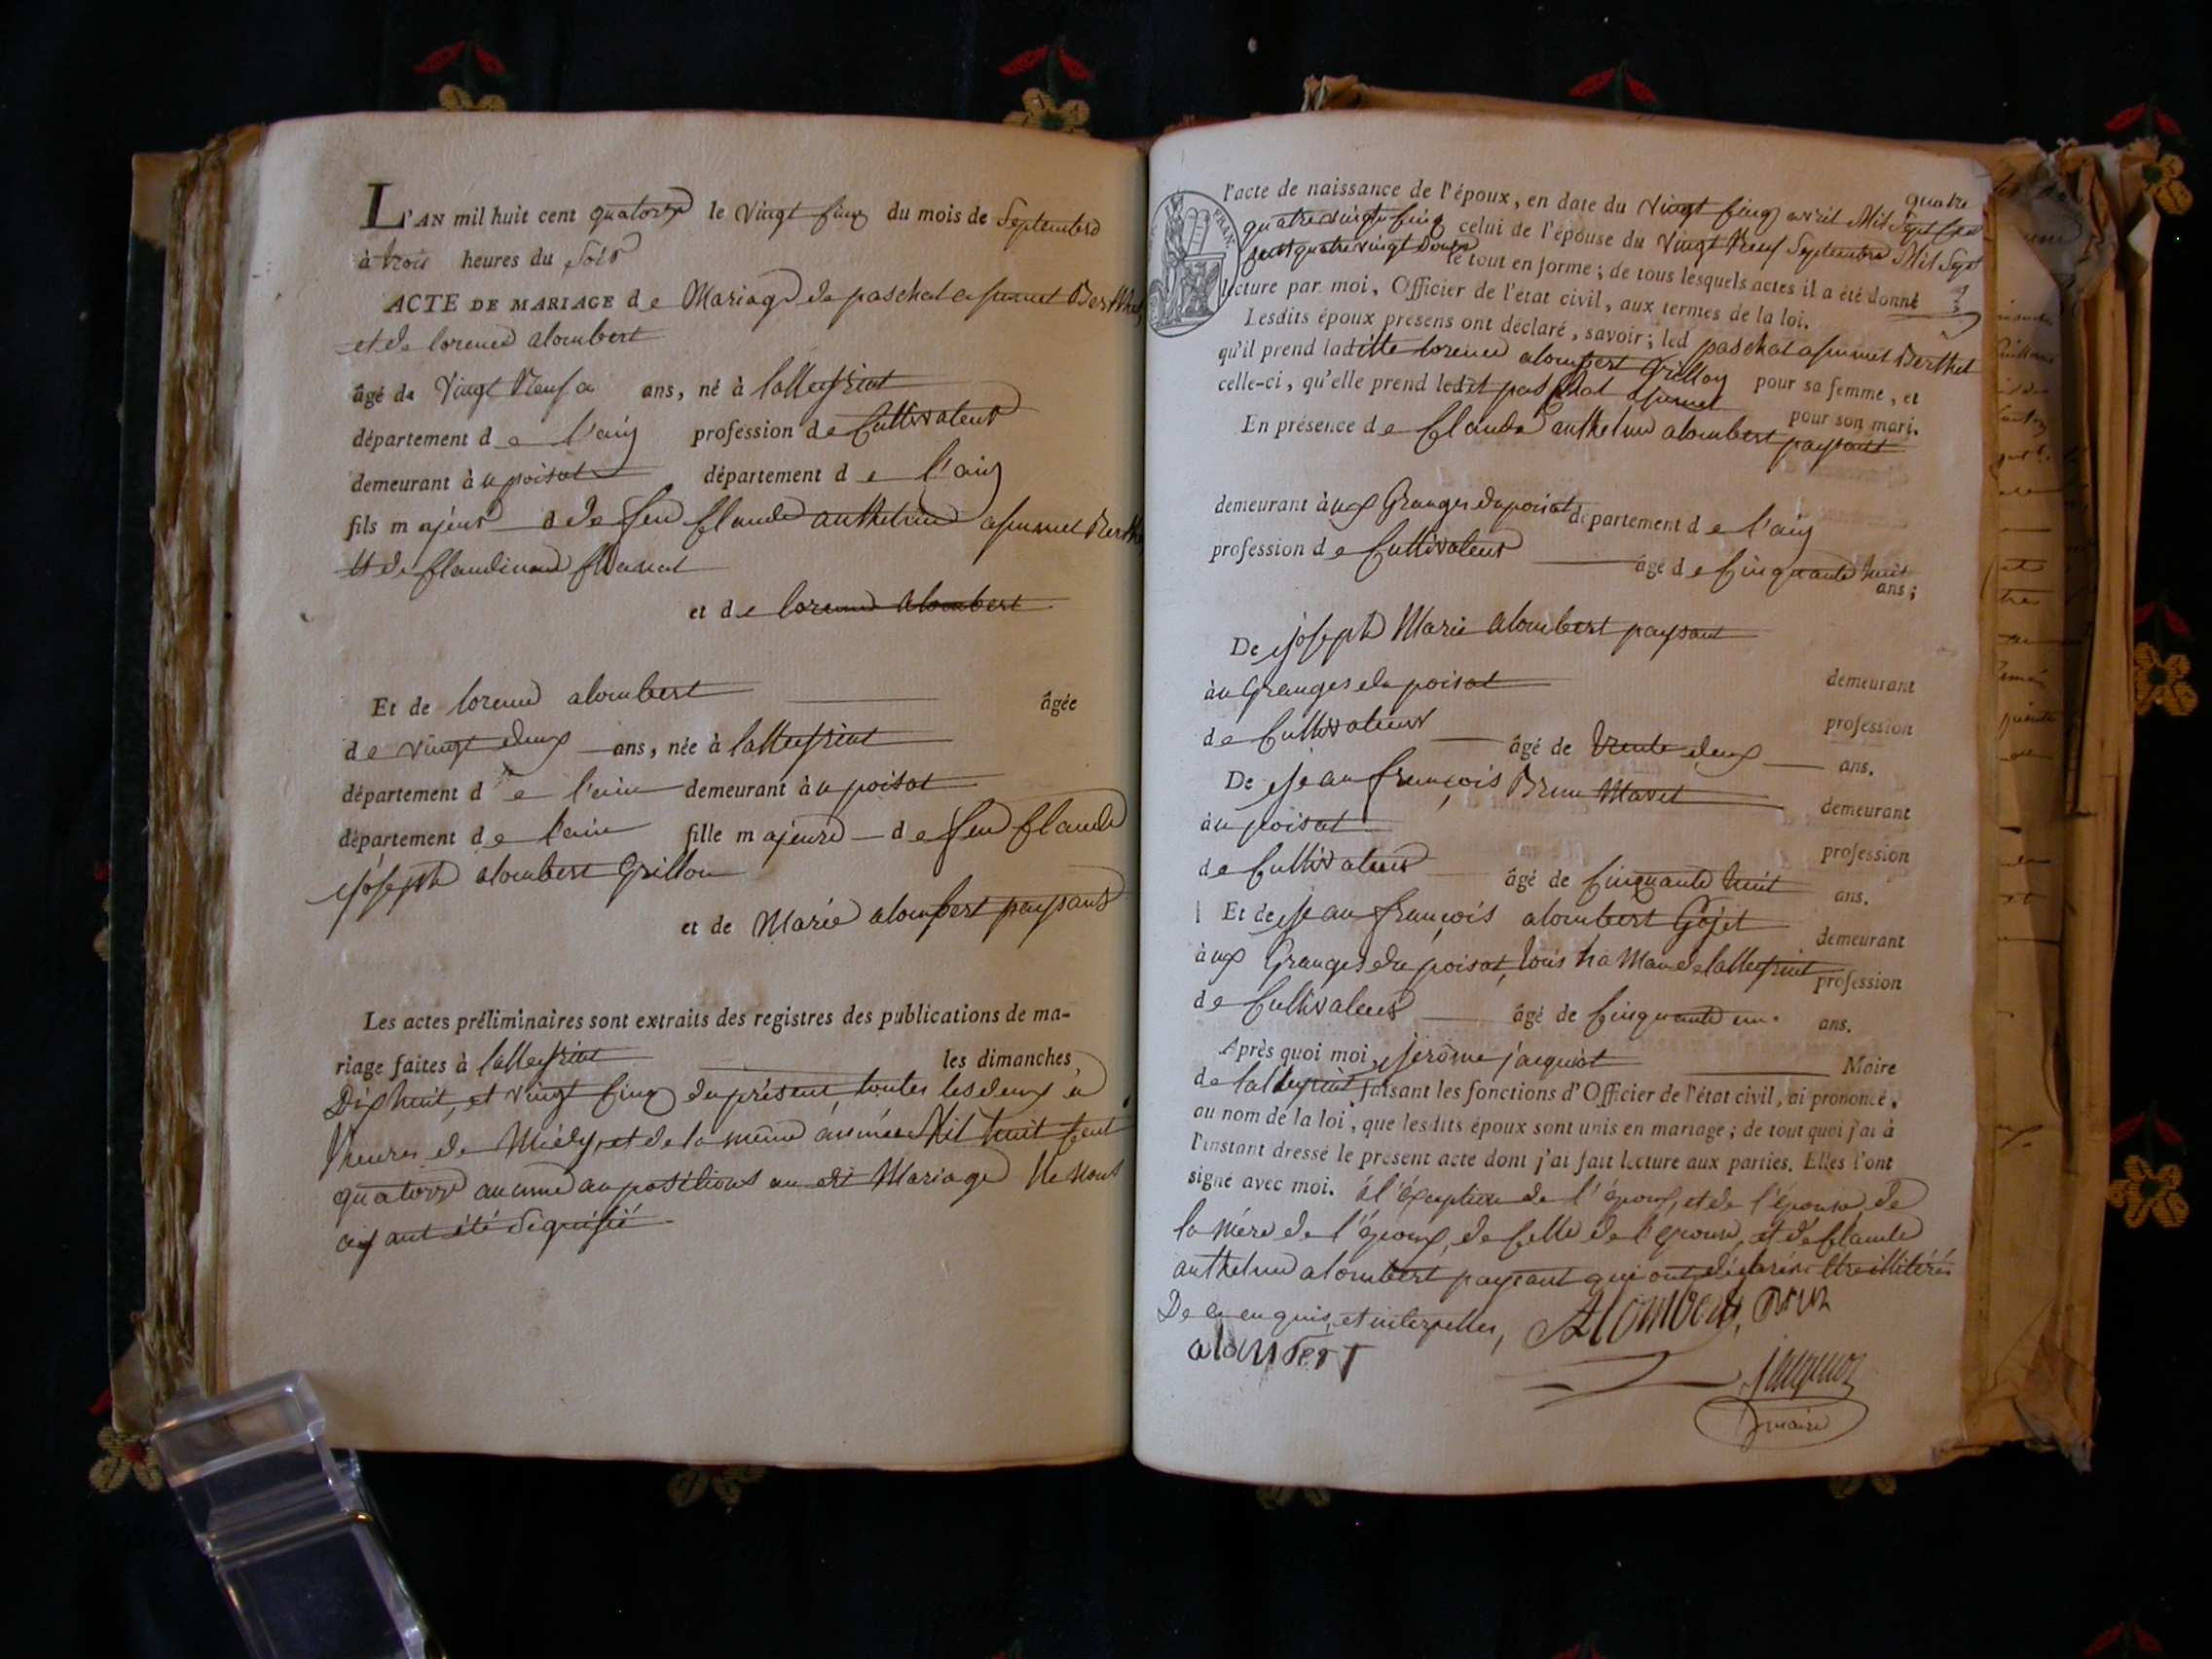 L'AN mil huit cent quatorze le vingt cinq du mois de Septembre
à trois heures du Soir
ACTE DE MARIAGE de Mariage de paschal Berthet
et de lorence alombert
âgé de vingt Neuf ans, né à lalleyriat
département de l'ain profession de Cultivateur
demeurant àu poisat département de l'ain
fils majeur de feu Claude anthelme Berthet
et de Claudine
et de lorence alombert
Et de lorence alombert âgée
de vingt deux ans, née à lalleyriat
département de l'ain demeurant àu poisat
département de l'ain fille majeure de feu Claude
joseph alombert Grillon
et de Marie alombert paysant
Les actes préliminaires sont extraits des registres des publications de ma-
riage faites à lalleyriat les dimanches,
Dix huit, et vingt cinq du présent, toutes les deux a
l'heure de Midy, et de la même année Mil huit Cent
quatorze aucune auposition au dit Mariage Ne nous
ayant été Signifié
l'acte de naissance de l'époux, en date du vingt cinq avril Mil Sept Cent quatre
quatre vingt cinq celui de l'épouse du vingt Neuf Septembre Mil Sept
Cent quatre vingt Douze le tout en forme; de tous lesquels actes il a été donné
lecture par moi, Officier de l'état civil, aux termes de la loi.
Lesdits époux présens ont déclaré, savoir; led paschal Berthet
qu'il prend laditte lorence alombert Grillon pour sa femme, et
celle-ci, qu'elle prend ledit paschal pour son mari.
En présence de Claude anthelme alombert paysant
demeurant àux Granges du poisat département de l'ain
profession de Cultivateur âgé de Cinquante huit ans;
De joseph Marie alombert paysant demeurant
àu Granges du poisat profession
de Cultivateur âgé de trente deux ans.
De jean françois Brun Mavet demeurant
àu poisat profession
de Cultivateur âgé de Cinquante huit ans.
Et de jean françois alombert Gojet demeurant
àux Granges du poisat, de lalleyriat profession
de Cultivateur âgé de Cinquante un ans.
Après quoi moi, jerôme jacquiot Maire
de lalleyriat faisant les fonctions d'Officier de l'état civil, ai prononcé,
au nom de la loi, que lesdits époux sont unis en mariage; de tout quoi j'ai à
l'instant dressé le présent acte dont j'ai fait lecture aux parties. Elles l'ont
signé avec moi. à l'éxception de l'époux, et de l'épouse, de
la mère de l'époux, de Celle de l'epouse, et de Claude
anthelme alombert paysant qui ont déclarés être illitérés
De ce enquis, et interpellés, Alombert, Brun
alombert
jacquiot
maire
FRAN.